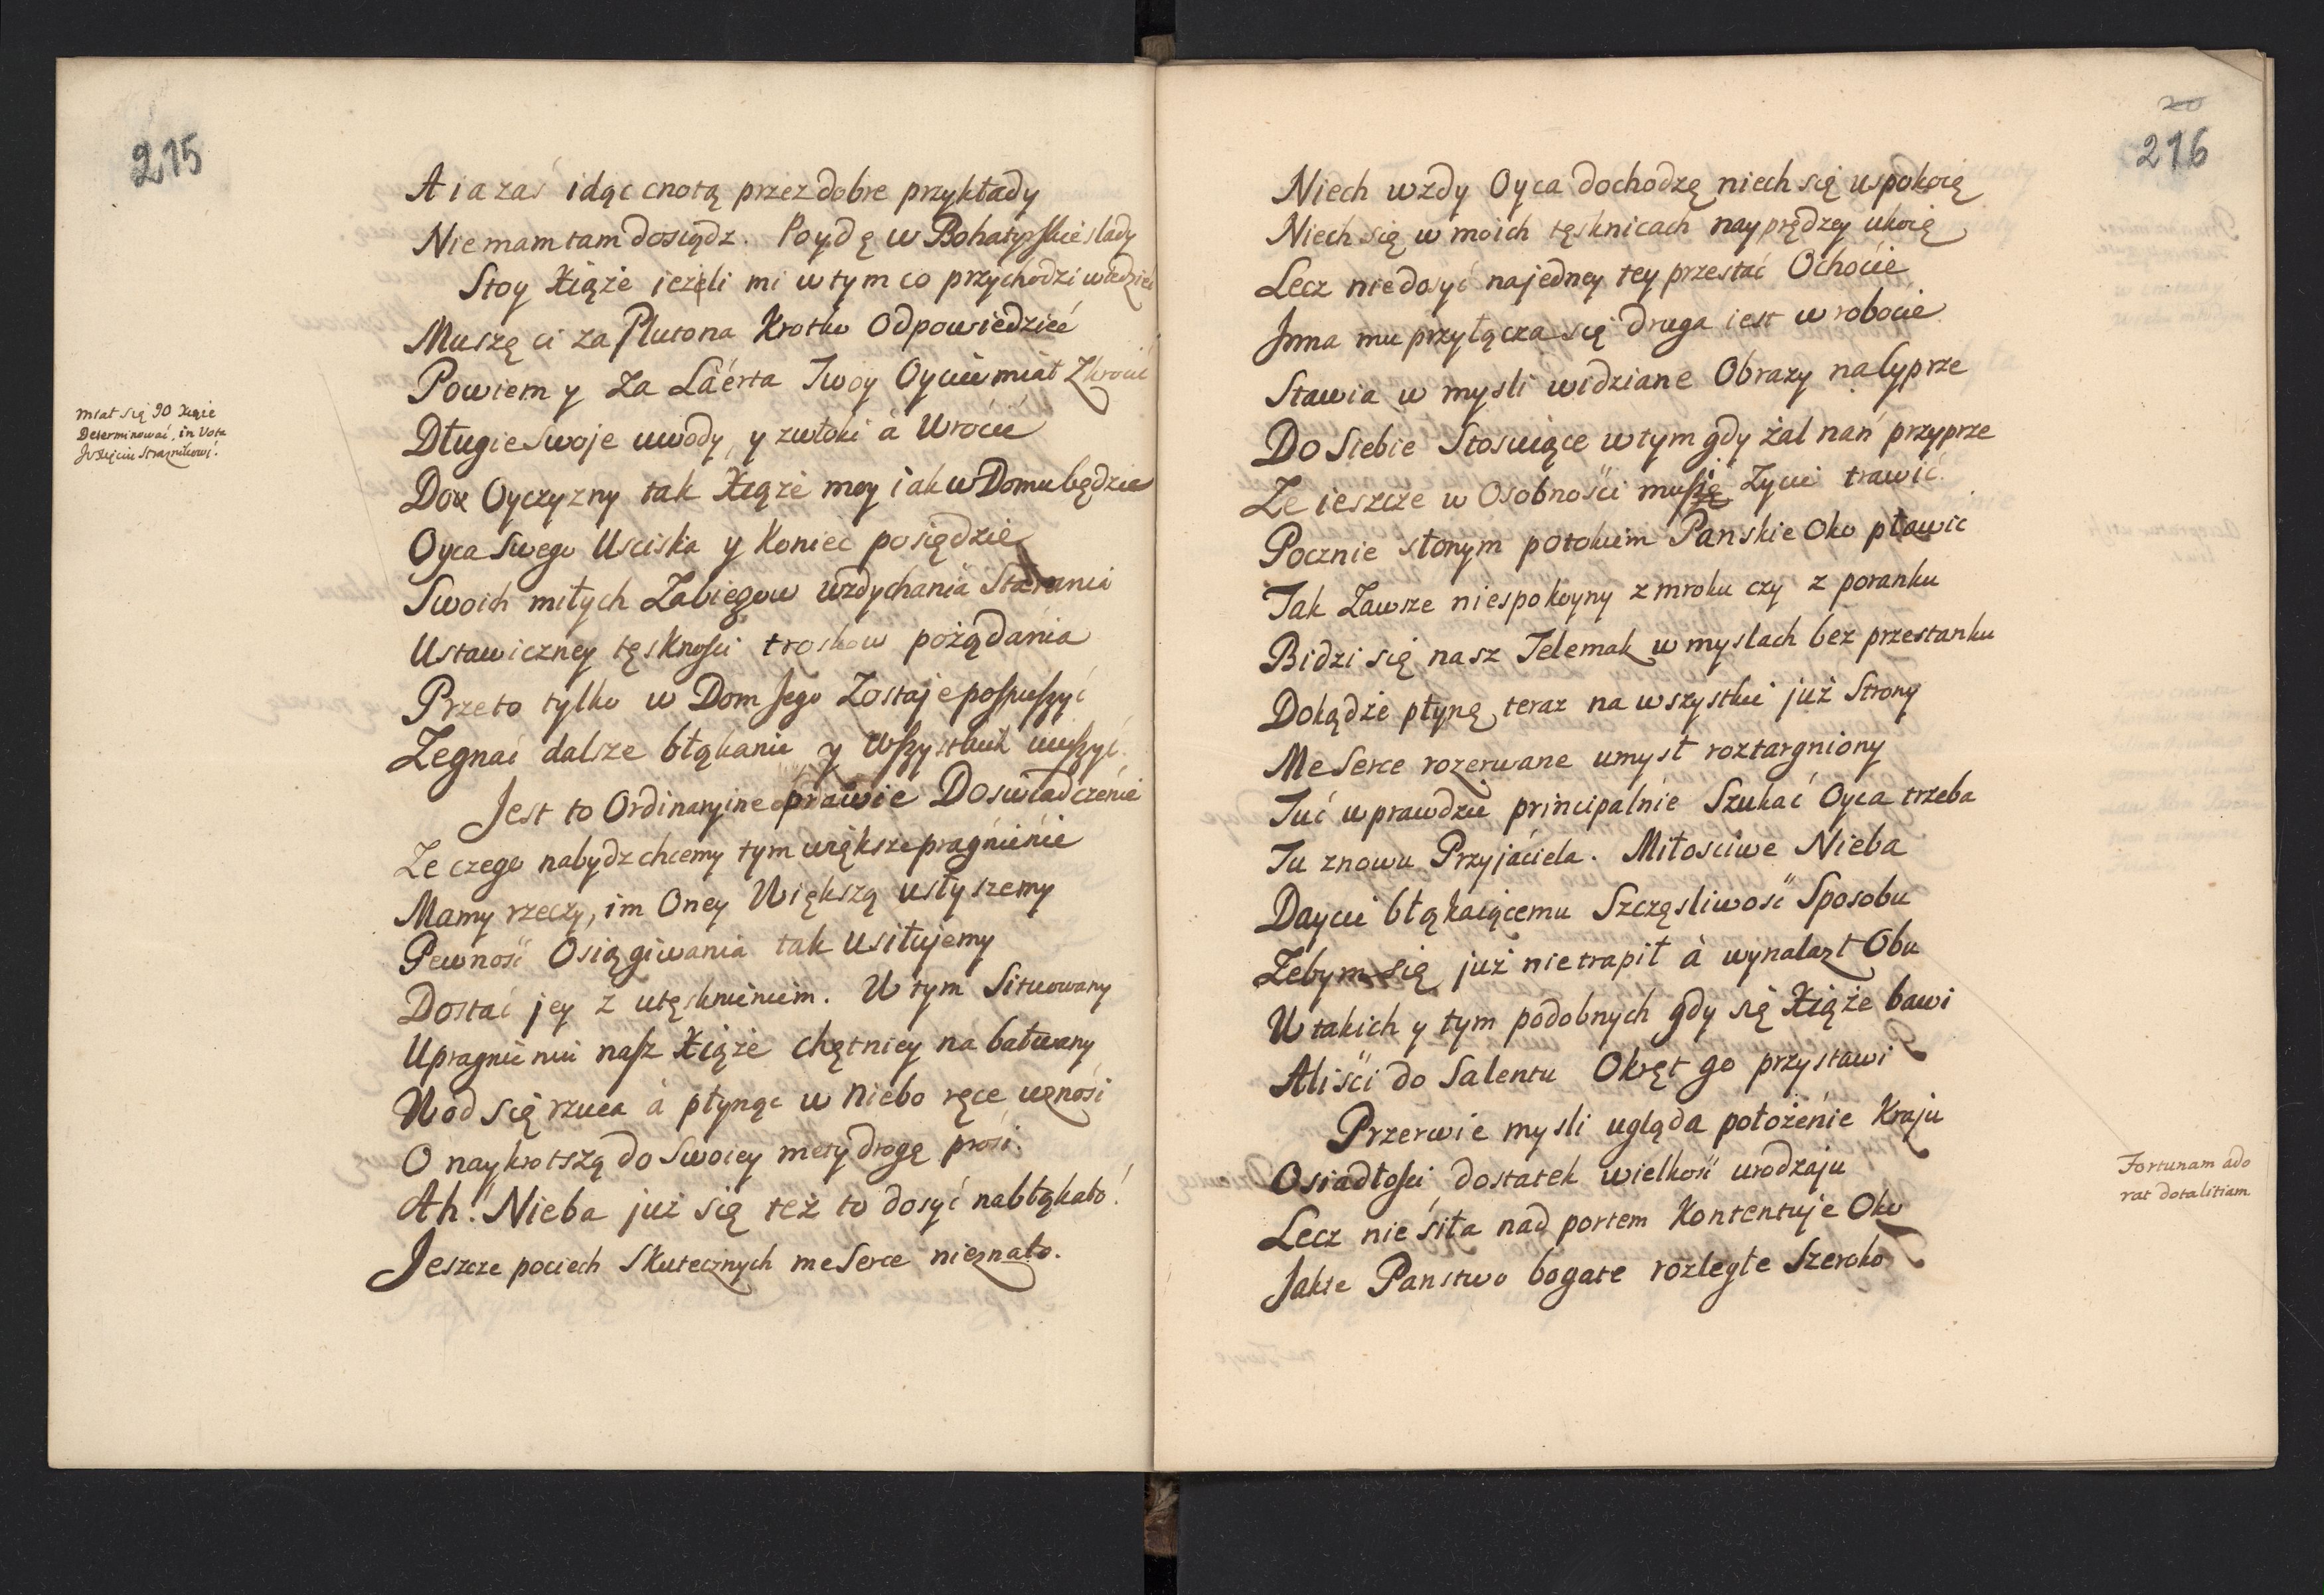 215
A ia zaś idąc cnotą przez dobre przykłady
Nie mam tam dosiądz. Poydę w Bohatyrskie slady
Stoy Xiąże ieżeli mi w tym co przychodzi wiedzieć
Muszę ci za Plutona Krotko Odpowiedzieć
Powiem y za Laërta Twoy Oyciec miał Zkrocić
Długie swoje uwody, y zwłoki à Wrocić
Do Oyczyzny tak Xiąże moy iak w Domu będzie
Oyca Swego Usciska y Koniec posiędzie
Swoich miłych Zabiegow wzdychania Starania
Ustawiczney tęsknosci troskow pożądania
Przeto tylko w Dom Jego Zostaje pospuszyć
Zegnać dalsze błąkanie y wszystkich uuszyć
Jest to Ordinaryine prawie Doswiadczenie
Ze czego nabydz chcemy tym większe pragnienie
Mamy rzeczy, im Oney Większą usłyszemy
Pewność Osiągiwania tak usiłujemy
Dostać jey z utęsknieniem. W tym Situowany
Upragnieniu nasz Xiąże chętniey na bałwany
Wod się rzuca à płynąc w Niebo ręce wznosi
O naykrotszą do Swoiey mety drogę prosi.
Ah! Nieba już się też to dosyć nabłąkało!
Jeszcze pociech Skutecznych me Serce nieznało.
miał się 90 Xcie
Determinować, in Vota
20
216
Niech wżdy Oyca dochodzę niech się uspokoię
Niech się w moich tęsknicach nayprędzey ukoię
Lecz niedosyć najedney tey przestać Ochocie
Jnna mu przyłącza się druga iest w robocie
Stawia w mysli widziane Obrazy na Cyprze
Do Siebie Stosuiące w tym gdy żal nań przyprze
Ze ieszcze w Osobności muszę Zycie trawić
Pocznie słonym potokiem Panskie Oko pławic
Tak Zawsze niespokoyny z mroku czy z poranku
Bidzi się nasz Telemak w myslach bez przestanku
Dokądże płynę teraz na wszystkie już Strony
Me Serce rozerwane umysł roztargniony
Tuć wprawdzie principalnie Szukać Oyca trzeba
Tu znowu Przyjaciela. Miłosciwe Nieba
Daycie błąkaiącemu Szczęsliwość Sposobu
Zebym się już nietrapił à wynalazł Obu
W takich y tym podobnych gdy się Xiąże bawi
Aliści do Salentu Okręt go przystawi
Przerwie mysli ugląda położenie Kraju
Osiadłości dostatek wielkość urodzaju
Lecz nie siła nad portem Kontentuje Oko
Jakie Panstwo bogate rozległe Szeroko
Fortunam ado
rat dotalitiam